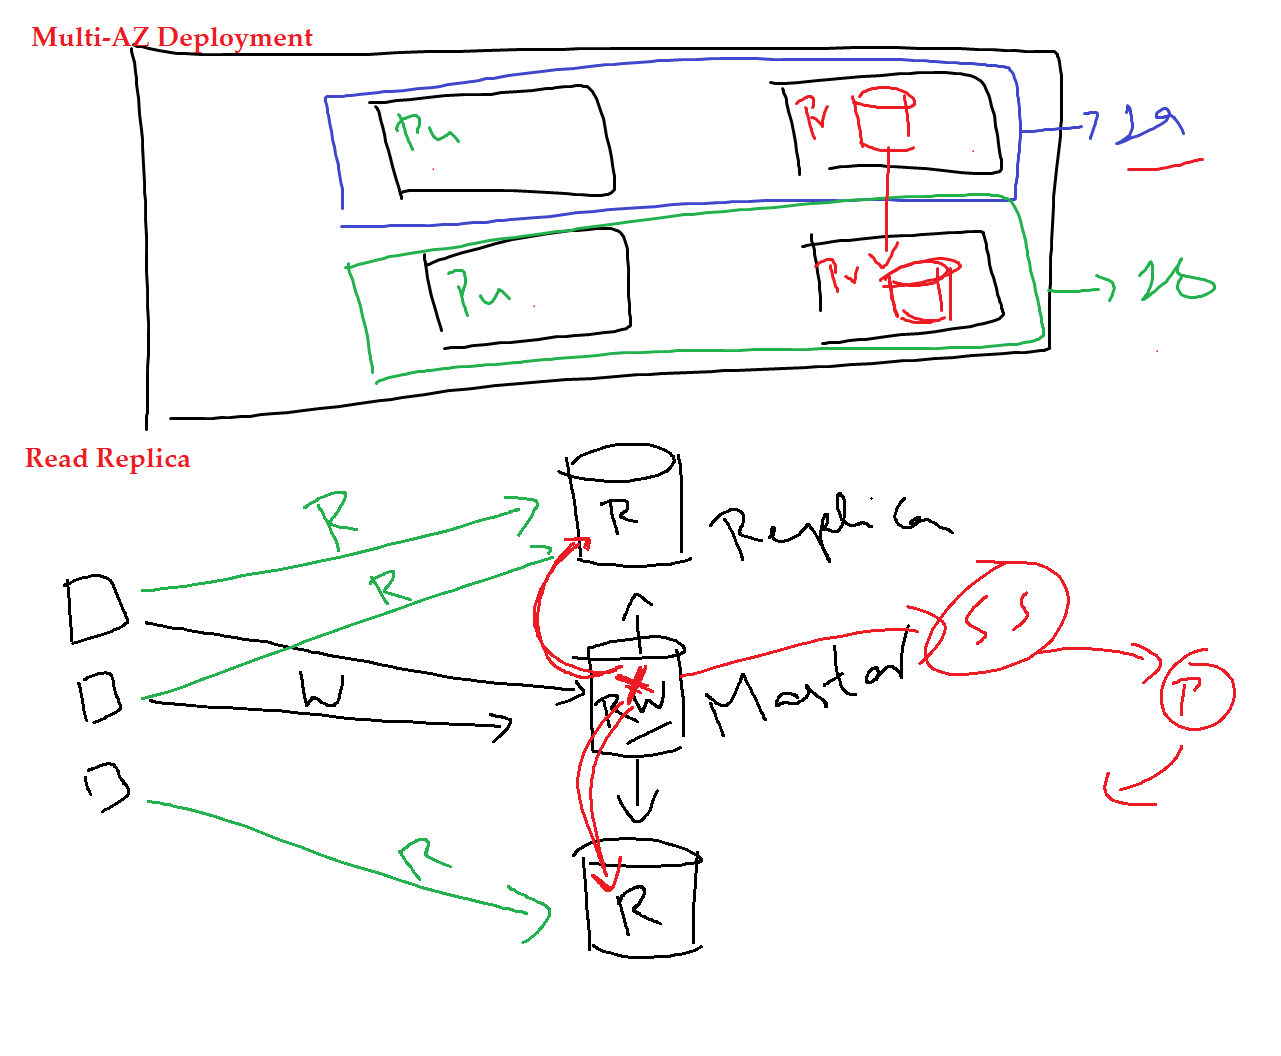 Multi-AZ Deployment
Pu
Pv
1a
Pu
Pv
1b
Read Replica
R
R
Replica
R
SS
W
RW
Master
P
R
R